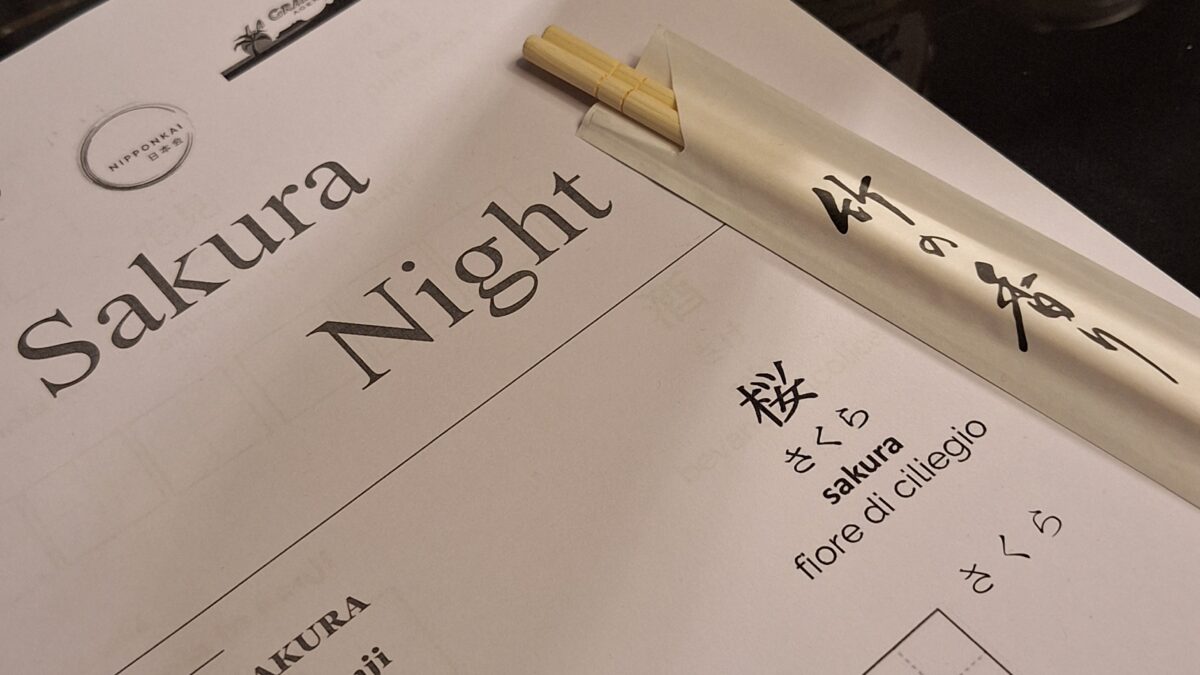 NIPPONKAI
日本会
Sakura
Night
竹の香り
桜
さくら
sakura
fiore di ciliegio
さくら
AKURA